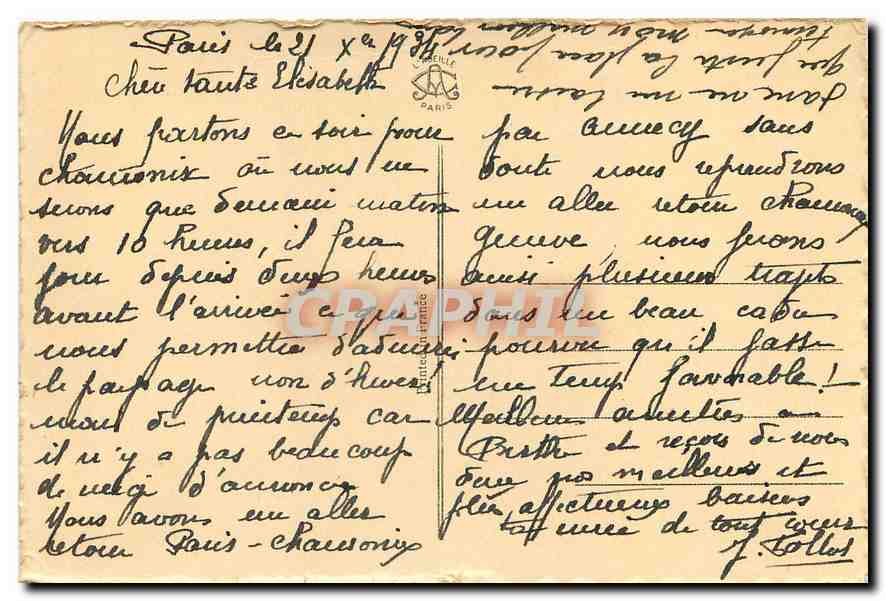 Paris le 21 Xbre 1934
Chère tante Elisabeth
Nous partons ce soir pour
Chamonix où nous ne
serons que demain matin
vers 10 heures, il fera
jour depuis deux heures
avant l'arrivée ce qui
nous permettra d'admirer
le paysage non d'hiver
mais de printemps car
il n'y a pas beaucoup
de neige d'annoncée
Nous avons un aller
retour Paris-Chamonix
par Annecy sans
doute nous reprendrons
un aller retour Chamonix
Genève, nous ferons
ainsi plusieurs trajets
dans un beau cadre
pourvu qu'il fasse
un temps favorable!
Meilleures amitiés à
Berthe et reçois de nous
deux nos meilleurs et
plus affectueux baisers
de tout cœur
que juste la place pour
L'ABEILLE
PARIS
Printed in France
CPAPHIL